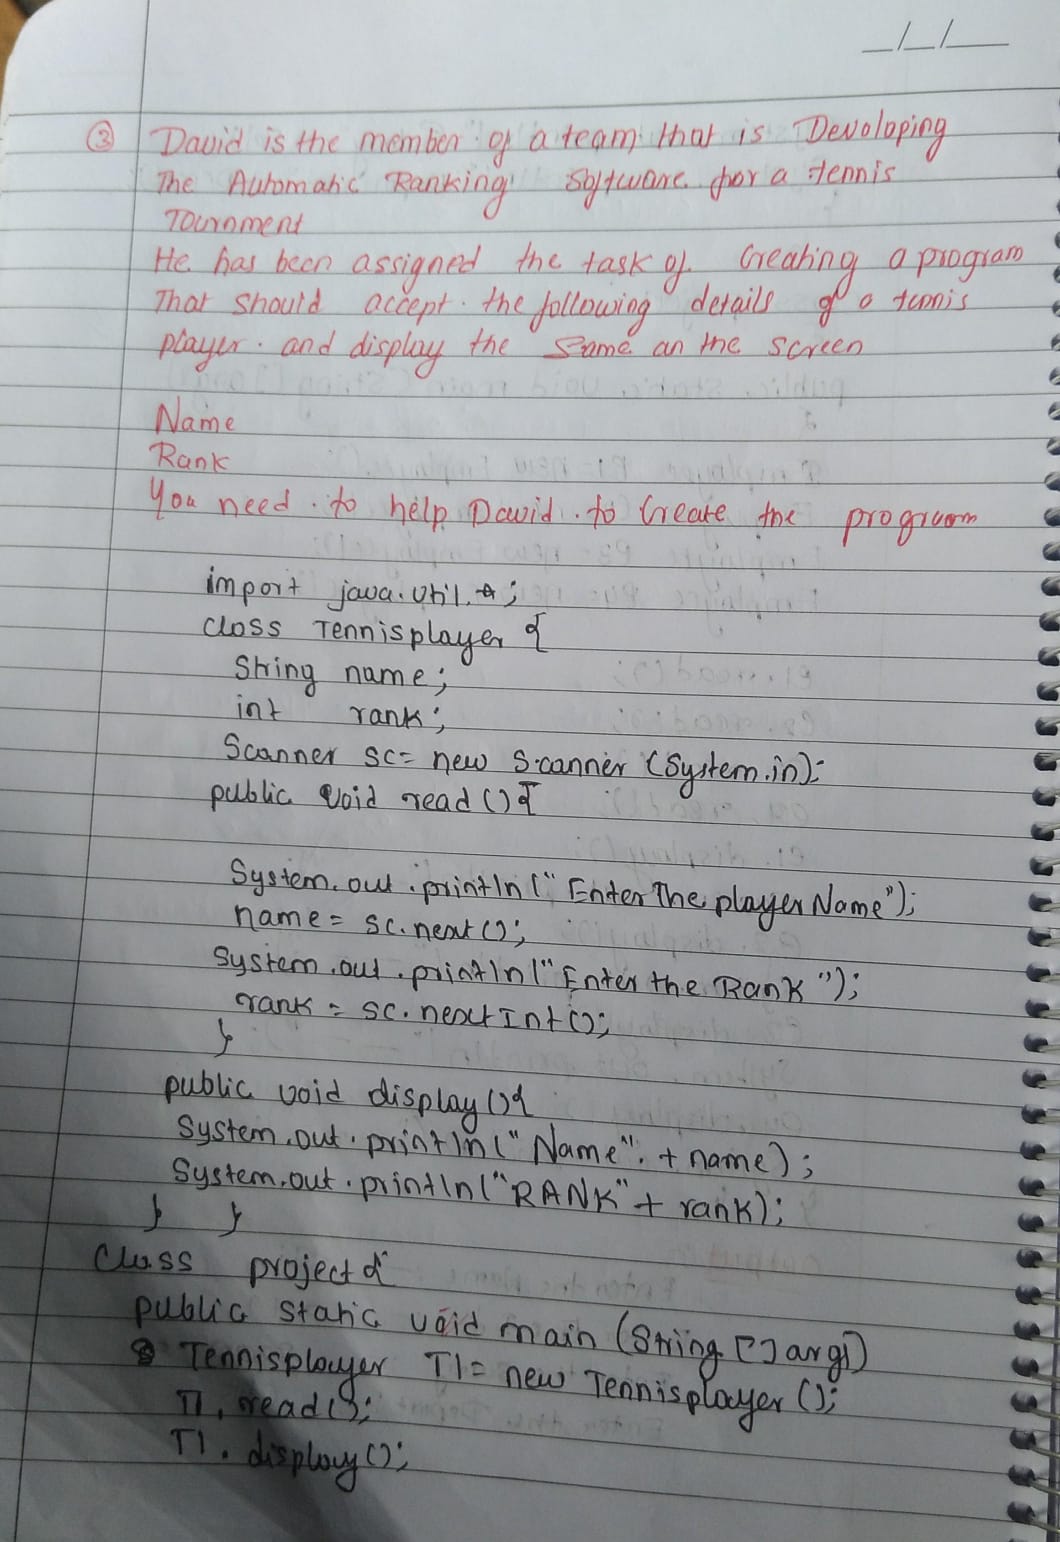 _/_/__
③ David is the member of a team that is Devoloping
The Automatic Ranking Software for a tennis
Tournment
He has been assigned the task of Creating a program
That should accept the following details of a tennis
player. and display the same an the screen
Name
Rank
You need to help David to Create the program
import java.util.*;
class Tennisplayer {
String name;
int rank;
Scanner sc= new Scanner (System.in);
public void read () {
System.out.println ("Enter The player Name");
name = sc.next ();
System.out.println ("Enter the Rank");
rank = sc.nextInt();
}
public void display () {
System.out.println ("Name": + name);
System.out.println ("RANK" + rank);
} }
Class project {
public static void main (String [] args)
{ Tennisplayer T1= new Tennisplayer ();
T1.read ();
T1.display ();